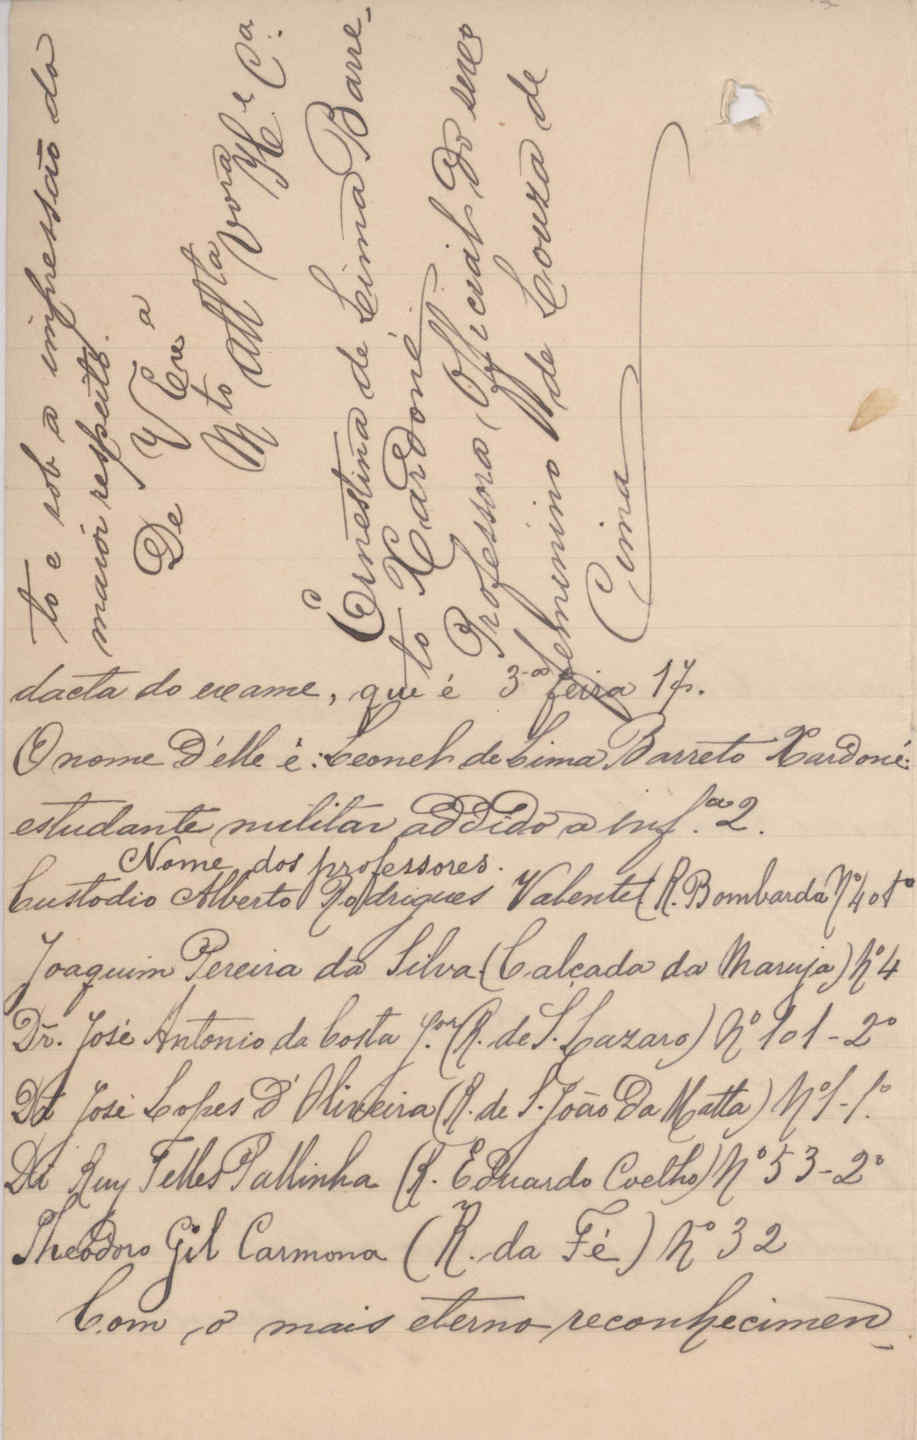 dacta do exame, que é 3ª feira 17.
O nome d'elle é: Leonel de Lima Barreto Xardoné:
estudante militar addido a inf.ª 2.
Nome dos professores.
Custodio Alberto Rodrigues Valente (R. Bombarda Nº
Joaquim Pereira da Silva (Calçada da Maruja) Nº 4
Dr. José Antonio da Costa J.or (R. de S. Lazaro) Nº 101-2º
Dr José Lopes d'Oliveira (R. de S. João da Matta) Nº 1-1.º
Dr Ruy Telles Pallinha (R. Eduardo Coelho) Nº 53-2º
Theodoro Gil Carmona (R. da Fé) Nº 32
Com o mais eterno reconhecimen-
to e sob a impressão do
maior respeito.
De V Exª
Mto Attta Vora
Ernestina de Lima Barre-
to Xardoné
Professora Official do sexo
femenino de Couza de
Cima